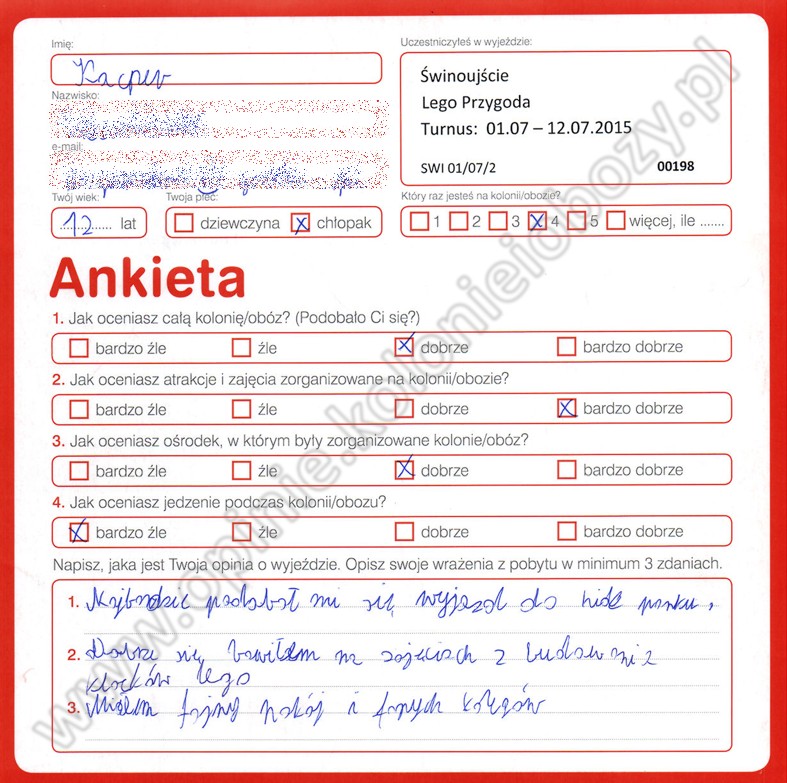 Imię:
Kacper
Uczestniczyłeś w wyjeździe:
Świnoujście
Lego Przygoda
Turnus: 01.07 – 12.07.2015
SWI 01/07/2 00198
Nazwisko:
e-mail:
Twój wiek:
12 lat
Twoja płeć:
dziewczyna x chłopak
Który raz jesteś na kolonii/obozie?
1 2 3 x 4 5 więcej, ile .......
Ankieta
1. Jak oceniasz całą kolonię/obóz? (Podobało Ci się?)
bardzo źle źle x dobrze bardzo dobrze
2. Jak oceniasz atrakcje i zajęcia zorganizowane na kolonii/obozie?
bardzo źle źle dobrze x bardzo dobrze
3. Jak oceniasz ośrodek, w którym były zorganizowane kolonie/obóz?
bardzo źle źle x dobrze bardzo dobrze
4. Jak oceniasz jedzenie podczas kolonii/obozu?
x bardzo źle źle dobrze bardzo dobrze
Napisz, jaka jest Twoja opinia o wyjeździe. Opisz swoje wrażenia z pobytu w minimum 3 zdaniach.
1. podobał mi się wyjazd do parku.
2. Dobrze się bawiłem na zajęciach z
klocków lego
3. Miałem fajny pokój i fajnych kolegów
www.opinie.kolonieiobozy.pl